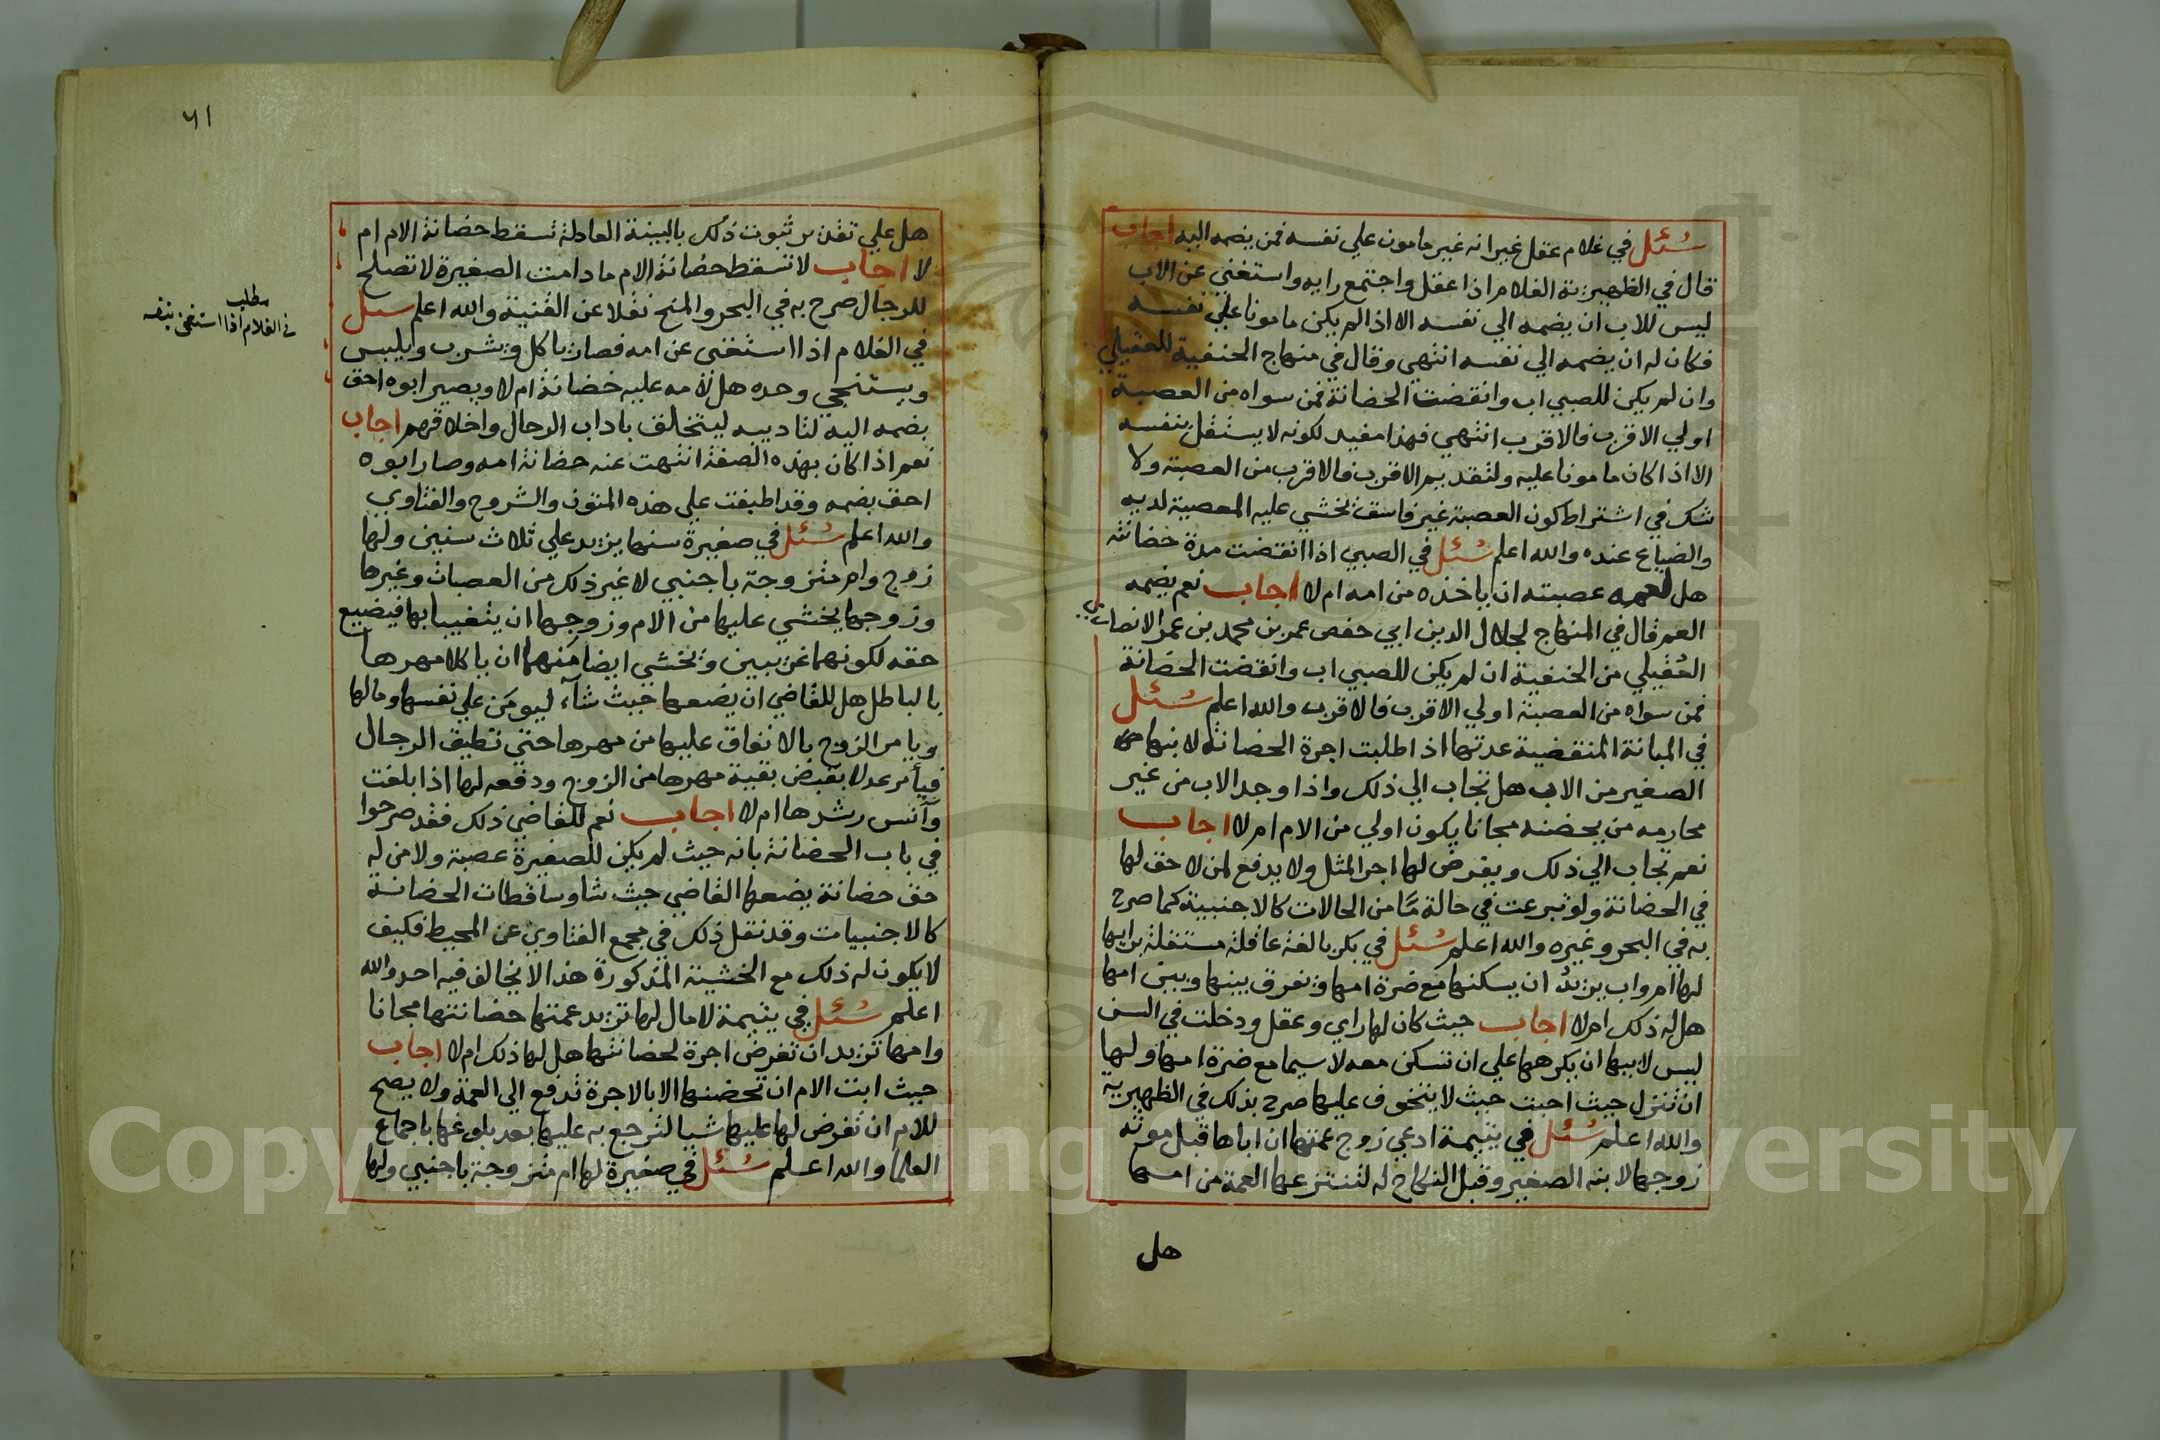 سُئل في غلام عقل غير انه غير مامون علي نفسه فمن يضمه اليه اجاب
قال في الظهيرية الغلام اذا عقل واجتمع رايه واستغني عن الاب
ليس للاب ان يضمه الي نفسه الا اذا لم يكن مامونا علي نفسه
فكان له ان يضمه الي نفسه انتهي وقال في منهاج الحنفية للعقيلي
وان لم يكن للصبي اب وانقضت الحضانة فمن سواه من العصبة
اولي الاقرب فالاقرب انتهي فهذا مفيد لكونه لا يستقل بنفسه
الا اذا كان مامونا عليه ولتقديم الاقرب فالاقرب من العصبة ولا
شك في اشتراط كون العصبة غير فاسق تخشي عليه المعصية لديه
والضياع عنده والله اعلم سُئل في الصبي اذا انقضت مدة حضانته
هل لعمه عصبته ان ياخذه من امه ام لا اجاب نعم يضمه
العم قال في المنهاج لجلال الدين ابي حفص عمر بن محمد بن عمر الانصاري
العُقيلي من الحنفية ان لم يكن للصبي اب وانقضت الحضانة
فمن سواه من العصبة اولي الاقرب فالاقرب والله اعلم سُئل
في المبانة المنقضية عدتها اذا طلبت اجرة الحضانة لابنها
الصغير من الاب هل تجاب الي ذلك واذا وجد الاب من غير
محارمه من يحضنه مجانا يكون اولي من الام ام لا اجاب
نعم تجاب الي ذلك ويفرض لها اجر المثل ولا يدفع لمن لا حق لها
في الحضانة ولو تبرعت في حالة مّا من الحالات كالاجنبية كما صرح
به في البحر وغيره والله اعلم سُئل في بكر بالغة عاقلة مستقلة برايها
لها ام واب يريد ان يسكنها مع ضرة امها ويفرق بينها وبين امها
هل له ذلك ام لا اجاب حيث كان لها راي وعقل ودخلت في السن
ليس لابيها ان يكرهها علي ان تسكن معه لا سيما مع ضرة امها ولها
ان تنزل حيث احبت حيث لا يتخوف عليها صرح بذلك في الظهيرية
والله اعلم سُئل في يتيمة ادعي زوج عمتها ان اباها قبل موته
زوجها لابنه الصغير وقبل النكاح له لتنتزعها العمة من امها
هل
٦١
هل علي تقدير ثبوت ذلك بالبينة العادلة تسقط حضانة الام ام
لا اجاب لا تسقط حضانة الام ما دامت الصغيرة لا تصلح
للرجال صرح به في البحر والمنح نقلا عن القنية والله اعلم سئل
في الغلام اذا استغني عن امه فصار ياكل ويشرب ويلبس
ويستنجي وحده هل لامه عليه حضانة ام لا ويصير ابوه احق
بضمه اليه لتاديبه ليتخلق باداب الرجال واخلاقهم اجاب
نعم اذا كان بهذه الصفة انتهت عنه حضانة امه وصار ابوه
احق بضمه وقد اطبقت علي هذه المتون والشروح والفتاوي
والله اعلم سُئل في صغيرة سنها يزيد علي ثلاث سنين ولها
زوج وام متزوجة باجنبي لا غير ذلك من العصبات وغيرها
وزوجها يخشي عليها من الام وزوجها ان يتغيبا بها فيضيع
حقه لكونهما غريبين ويخشي ايضا منهما ان ياكلا مهرها
بالباطل هل للقاضي ان يضعها حيث شآء ليومن علي نفسها ومالها
ويامر الزوج بالانفاق عليها من مهرها حتي تطيق الرجال
فيأمر عدلا بقبض بقية مهرها من الزوج ودفعه لها اذا بلغت
وآنس رشدها ام لا اجاب نعم للقاضي ذلك فقد صرحوا
في باب الحضانة بانه حيث لم يكن للصغيرة عصبة ولا من له
حق حضانة يضعها القاضي حيث شا وساقطات الحضانة
كالاجنبيات وقد نقل ذلك في مجمع الفتاوي عن المحيط فكيف
لا يكون له ذلك مع الخشية المذكورة هذا لا يخالف فيه احد والله
اعلم سُئل في يتيمة لا مال لها تريد عمتها حضانتها مجانا
وامها تريد ان تفرض اجرة لحضانتها هل لها ذلك ام لا اجاب
حيث ابت الام ان تحضنها الا بالاجرة تدفع الي العمة ولا يصح
للام ان تفرض لها عليها شيا لترجع به عليها بعد بلوغها باجماع
العلما والله اعلم سُئل في صغيرة لها ام متزوجة باجنبي ولها
مطلب
في الغلام اذا استغني بنفسه
Copyright © King University